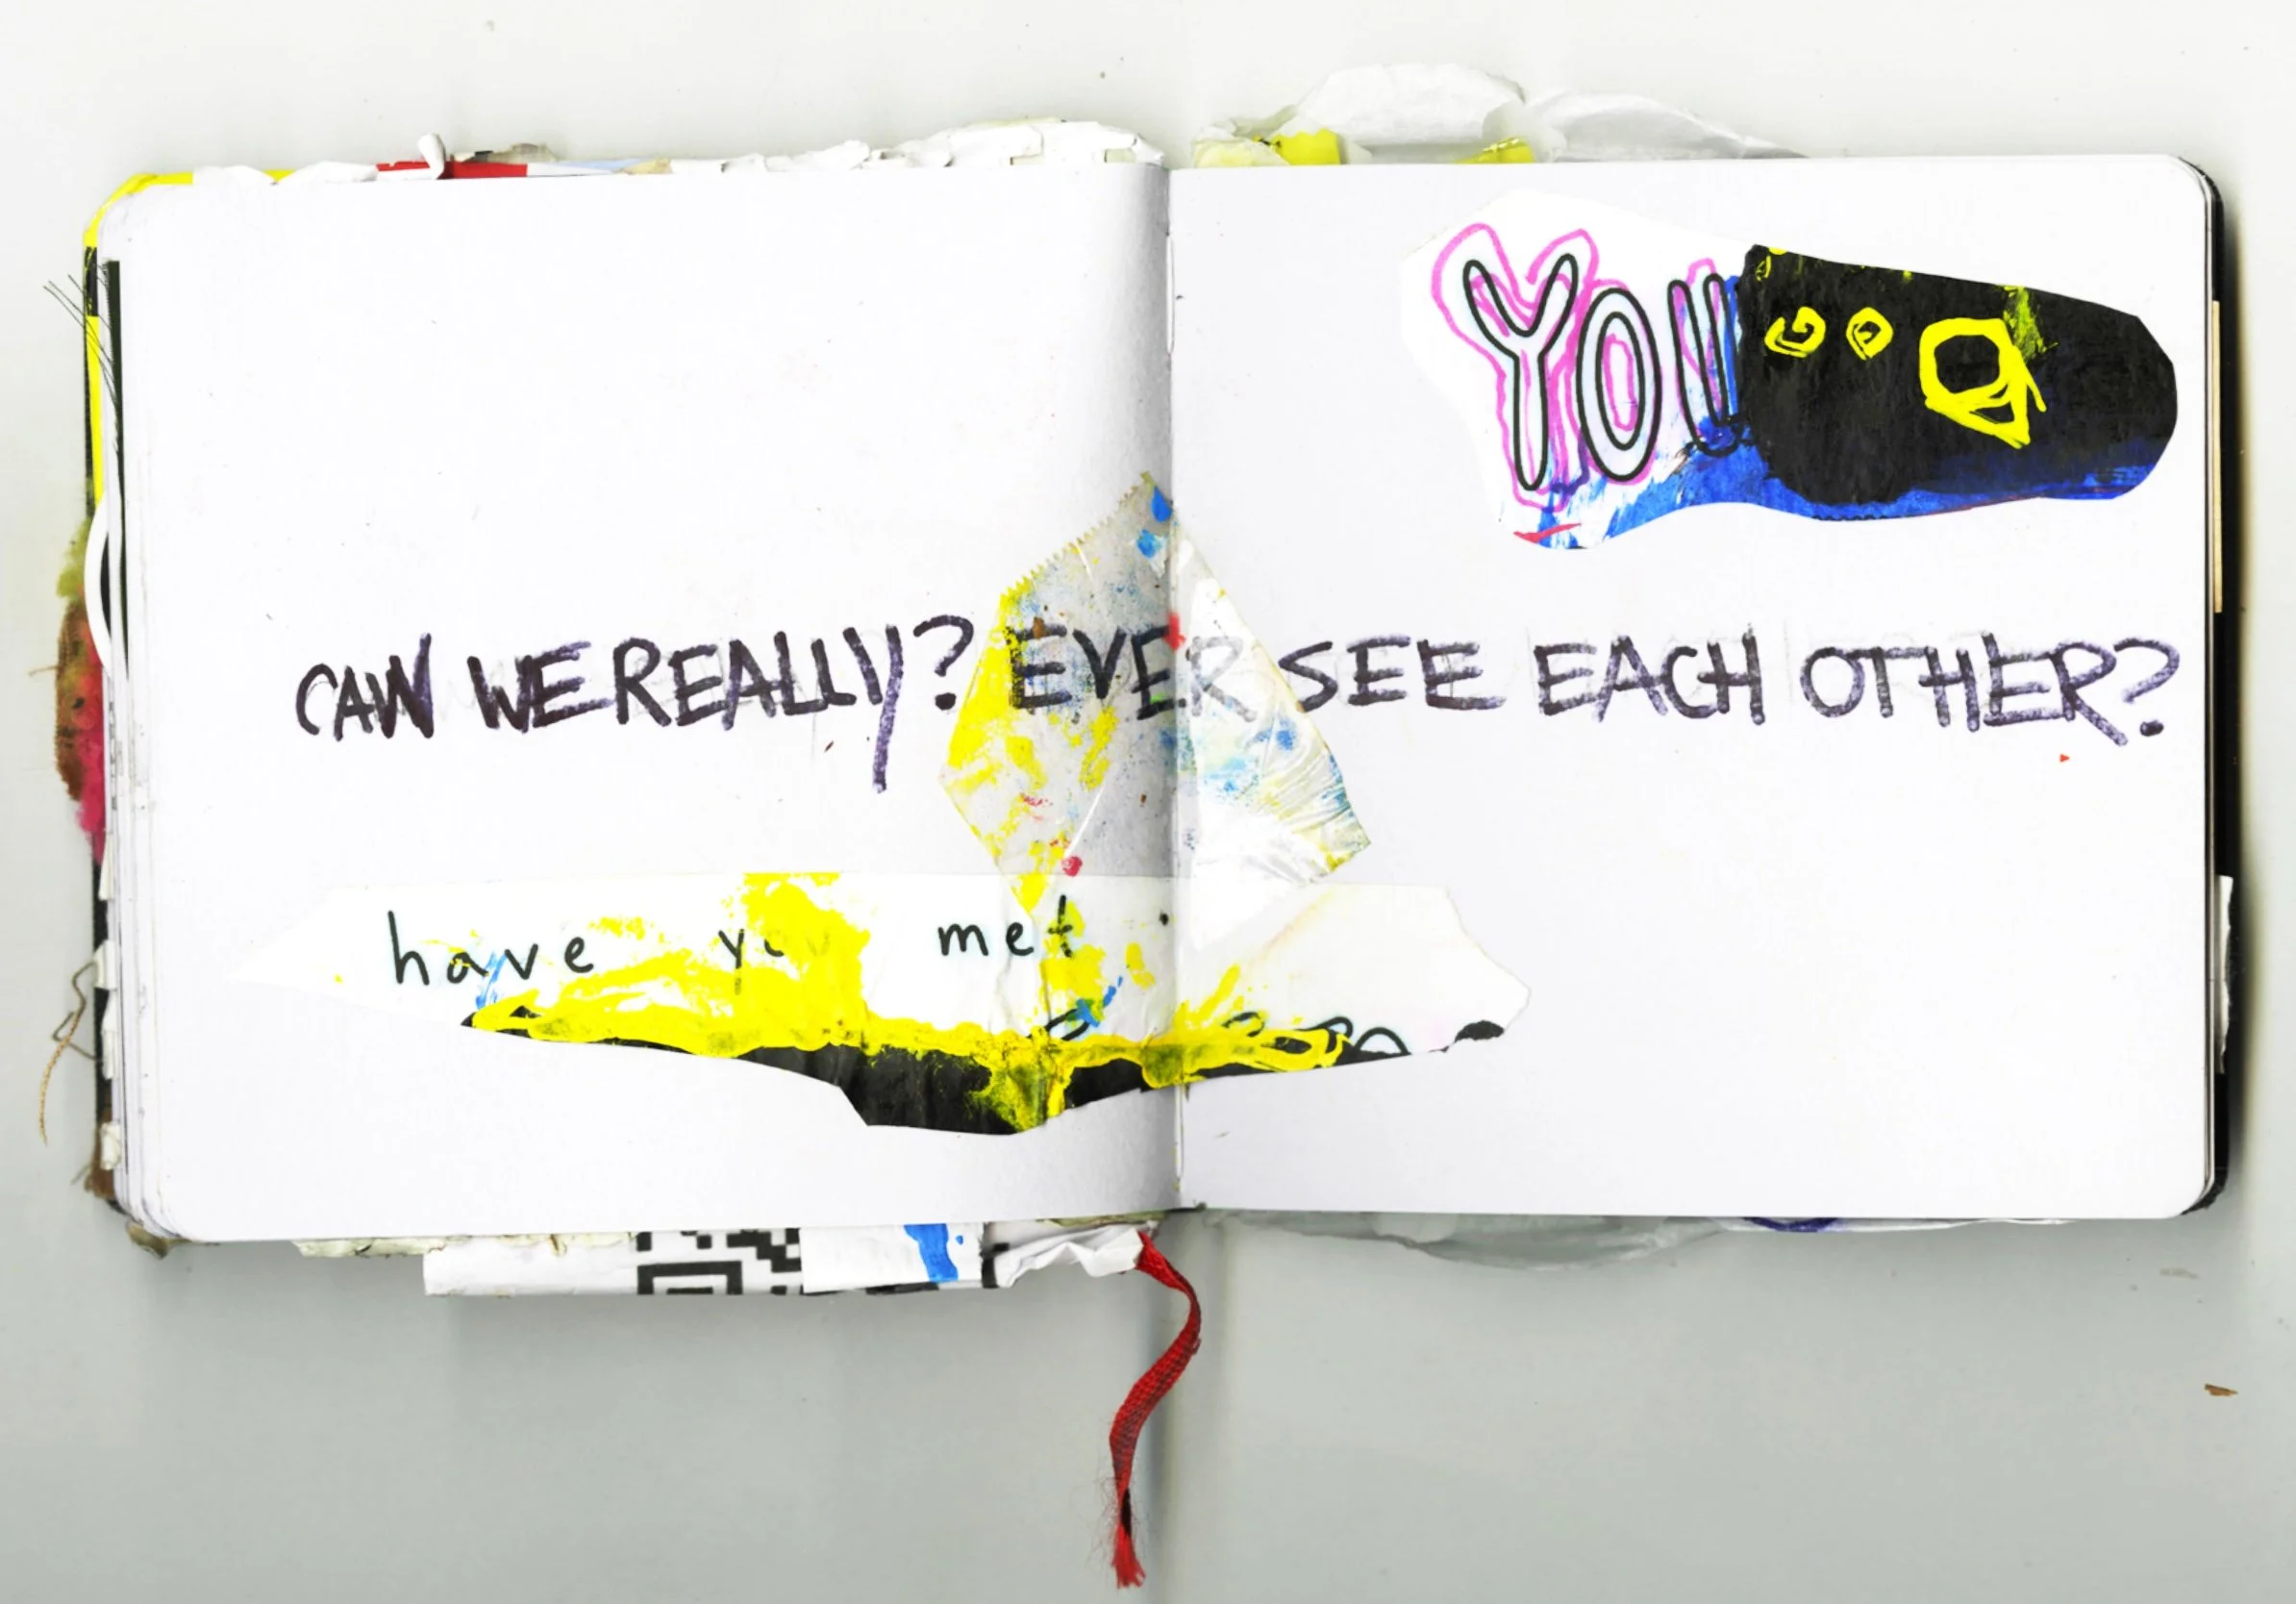 YOU
CAN WE REALLY? EVER SEE EACH OTHER?
have you met